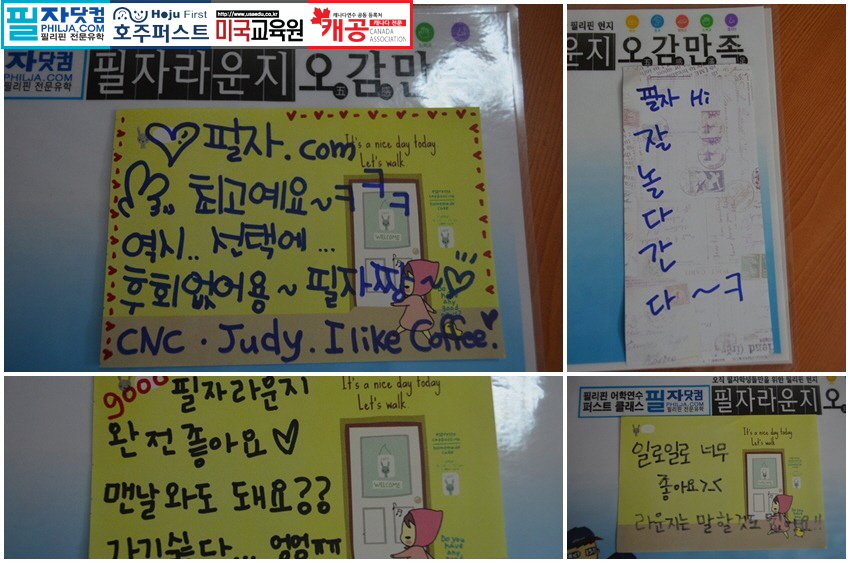 필자닷컴
PHILJA.COM
필리핀 전문유학
Hoju First
호주퍼스트
http://www.usaedu.co.kr
미국교육원
캐나다연수 공동 등록처
캐공 캐나다 전문
CANADA
ASSOCIATION
자닷컴
PHILJA.COM
필리핀 전문유학
필자라운지 오감만
It's a nice day today.
Let's walk.
필자.com
최고예요~ㅋㅋㅋ
역시.. 선택에 ...
후회없어용~ 필자짱~
WELCOME
CNC. Judy. I like Coffee.
필리핀 현지
운지 오감만족
필자 Hi
잘
놀
다
간
다~ㅋ
gooo 필자라운지
It's a nice day today
Let's walk.
완전좋아요♡
맨날와도 돼요??
WELCOME
가기싫다... 엉엉ㅠㅠ
Do you
have any
good
오직 필자학생들만을 위한 필리핀 현지
필리핀 어학연수
퍼스트 클래스
필자닷컴
PHILJA.COM
필리핀 전문유학
필자라운지 오
It's a nice day today.
Let's walk.
일로일로 너무
좋아요>.<
라운지는 말할것도 없어요!!